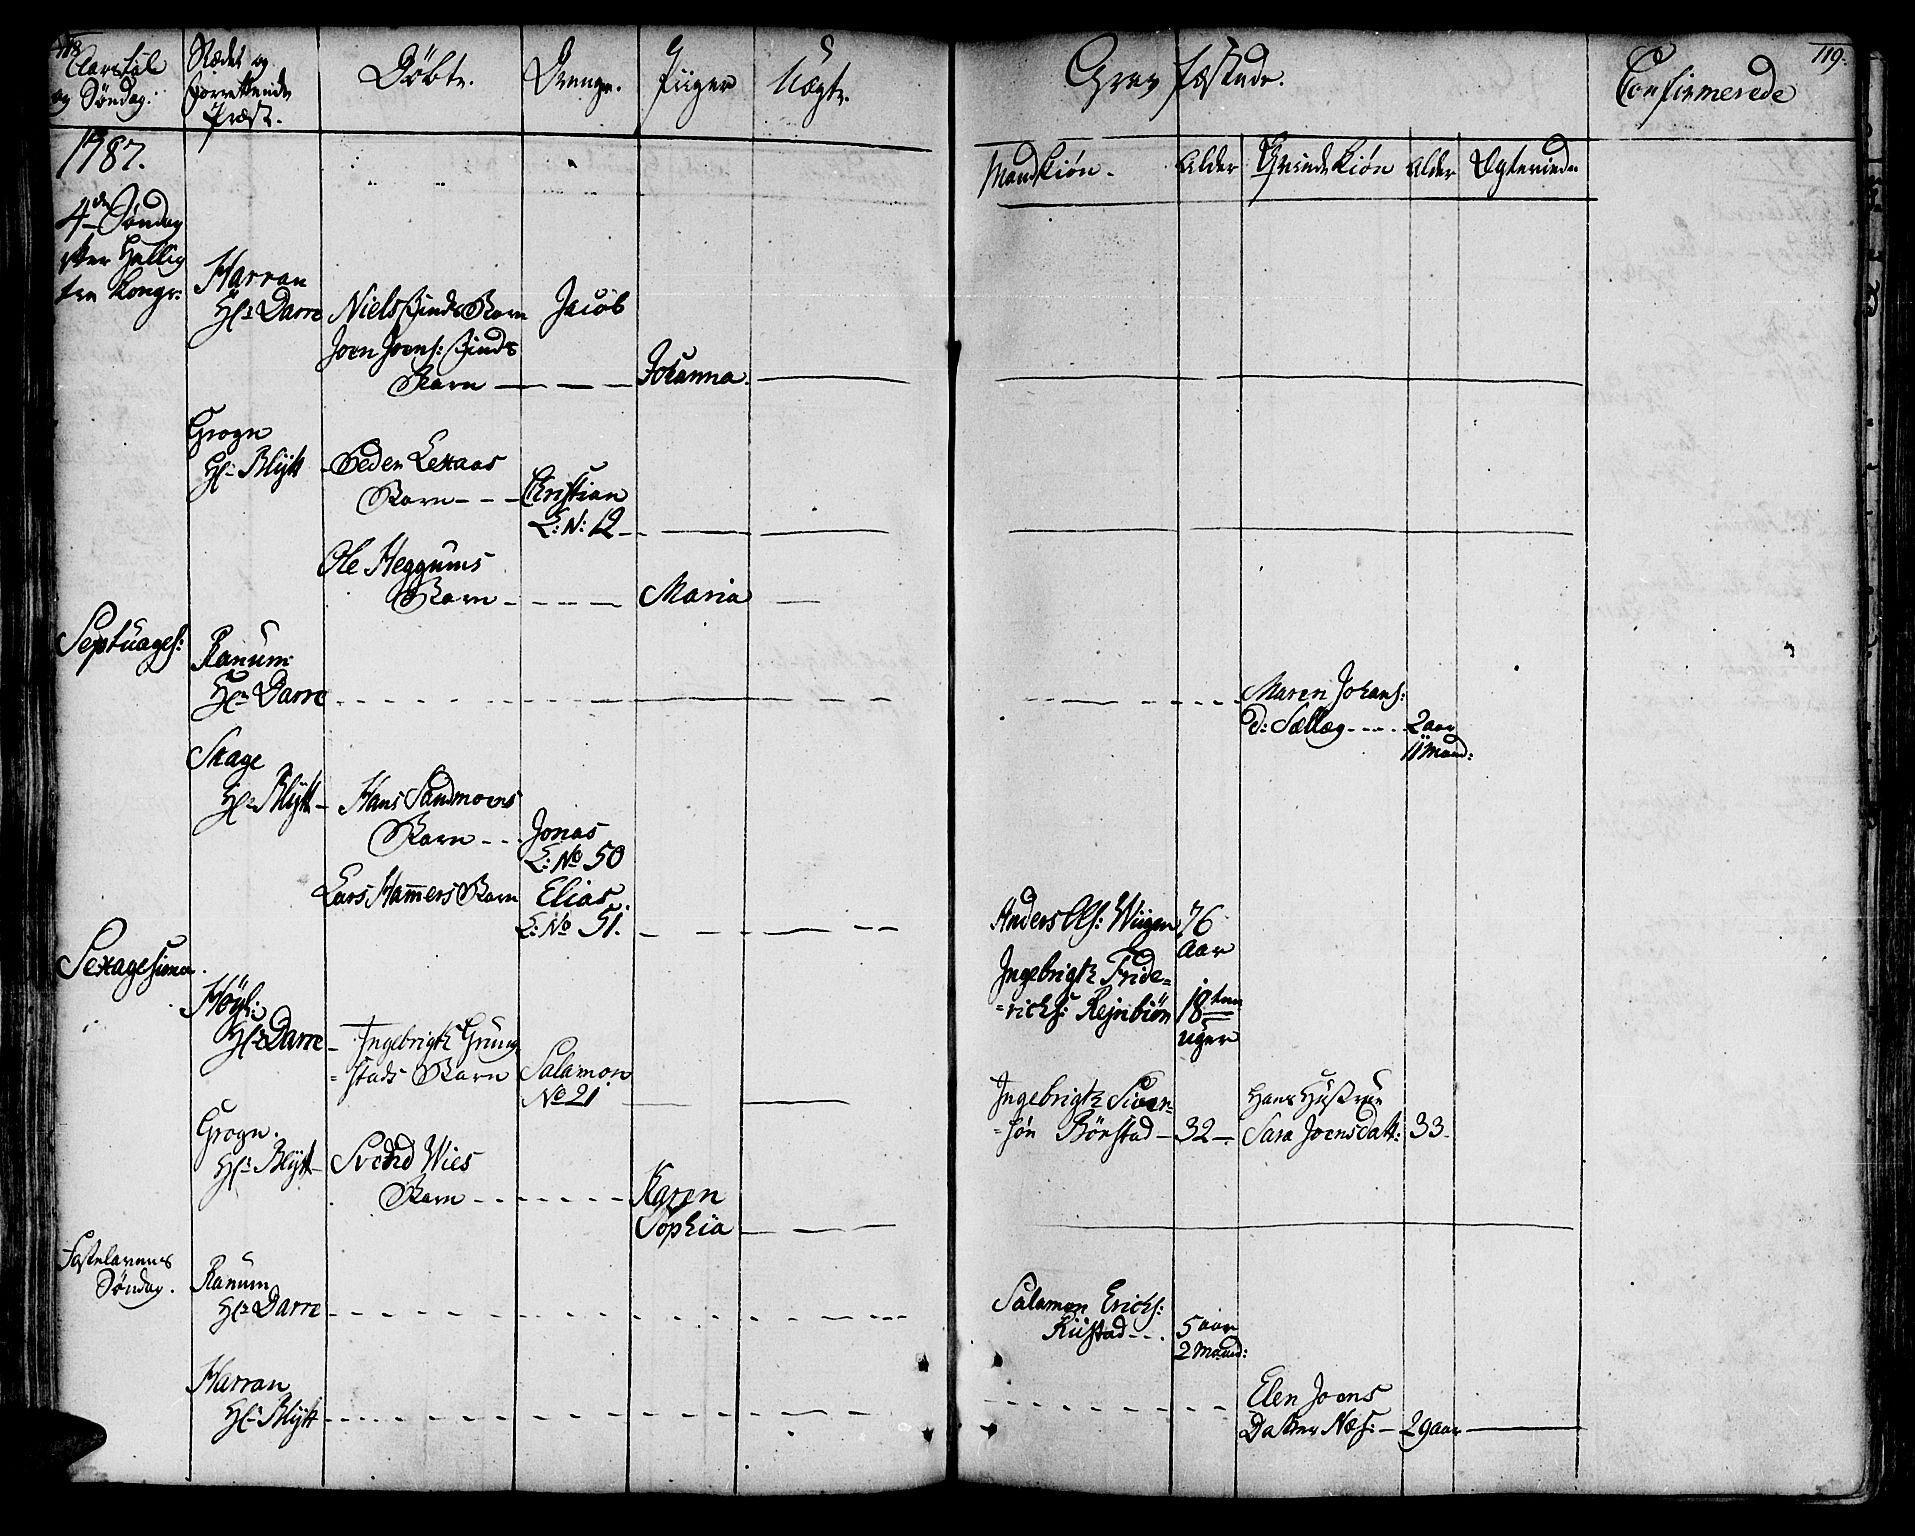 118
Aarstal
og Søndag.
Stædet og
forrettende
Præst.
Döbte.
Drenge.
Piiger
Uægte.
1787.
4de Søndag
efter Hellig
tre Konger:
Harran
Hr: Darre
Niels Binds Barn
Jacob
Joen Joens: Binds
Barn
Johanna.
Grogn
Hr: Blÿtt
Peder Lexaas
Barn
Christian
L: N: 12
Ole Heggums
Barn
Maria
Septuages:
Ranum
Hr Darre
Skage
Hr: Blÿtt
Hans Sandmoens
Barn
Jonas
L: No 50
Lars Ham̄ers Barn
Elias.
L: No 51.
Sexagesima.
Höyl:
Hr: Darre
Ingebrigt Grung
=stads Barn
Salamon
No 21
Grogn.
Hr: Blÿtt
Svend Wies
Barn
Karen
Sophia
Fastelavens
Søndag.
Ranum
Hr: Darre
Harran
Hr: Blÿtt
119.
Gravfæstede.
Confirmerede
Mandkiøn.
Alder
Qvindekiøn
Alder
Ægteviede
Maren Johans:
D: Sællæg
2 aar
11 Maan:
Anders Ols: Wiigen
76
Aar
Ingebrigt Fride=
=richs: Rejnbiön
18 ten
uger
Ingebrigt Siver=
=søn Börstad
32
Hans Hustrue
Sara Joensdatt:
33
Salamon Erichs:
Kustad
5 aar
2 Maan:
Elen Joens
Datter Næs:
29 aar